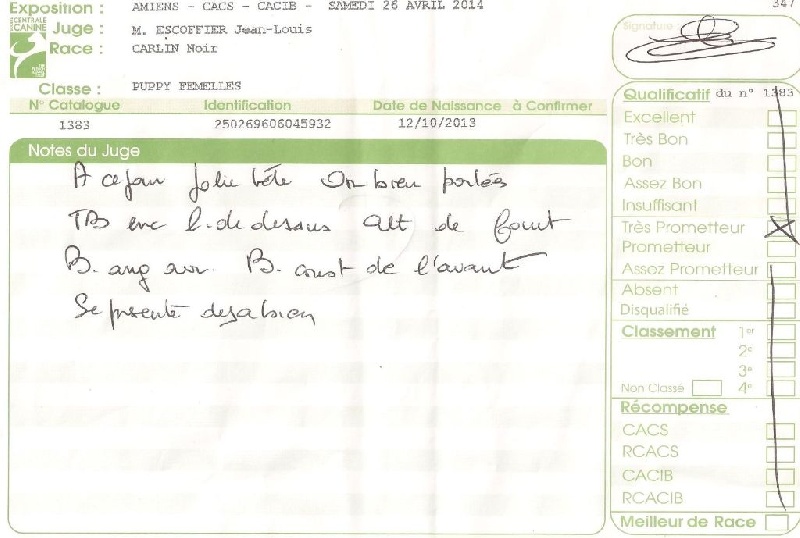 CENTRALE
CANINE
Exposition : AMIENS - CACS - CACIB - SAMEDI 26 AVRIL 2014
347
Juge : M. ESCOFFIER Jean-Louis
Race : CARLIN Noir
Classe : PUPPY FEMELLES
Signature
N° Catalogue Identification Date de Naissance à Confirmer
1383 250269606045932 12/10/2013
Notes du Juge
A ce jour jolie tête bien portées
TB enc l. de dessus alt de fouet
B. ang av. B. const de l'avant
Se présente deja bien
Qualificatif du n° 1383
Excellent
Très Bon
Bon
Assez Bon
Insuffisant
Très Prometteur
Prometteur
Assez Prometteur
Absent
Disqualifié
Classement 1er
2e
3e
Non Classé 4e
Récompense
CACS
RCACS
CACIB
RCACIB
Meilleur de Race